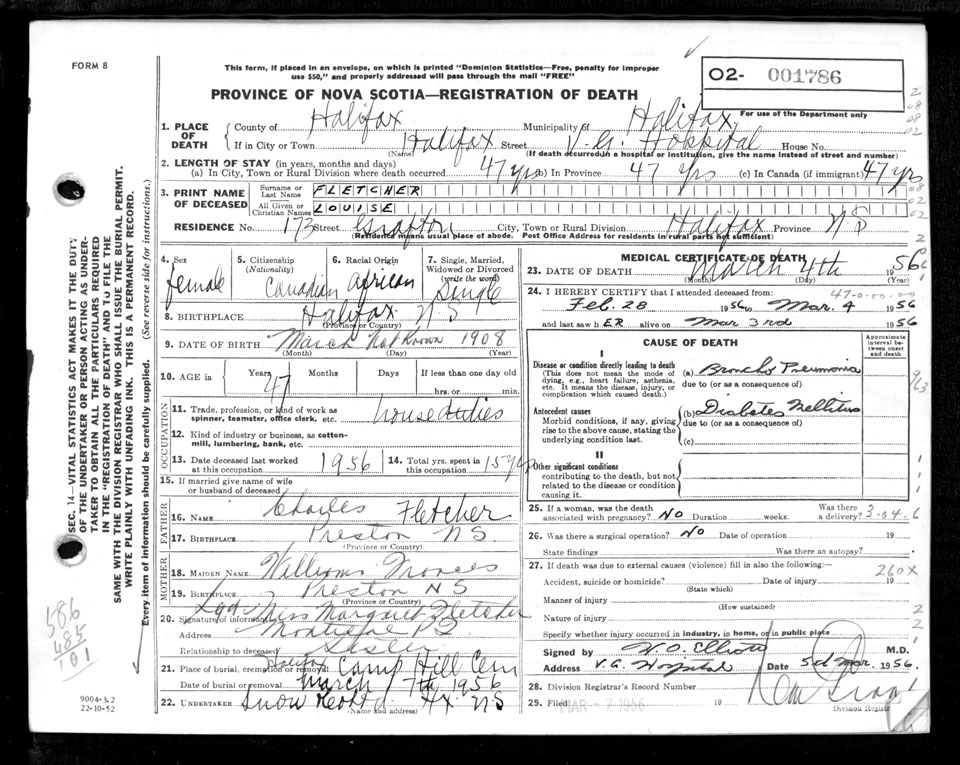 FORM 8
This form, if placed in an envelope, on which is printed "Dominion Statistics—Free, penalty for improper
use $50," and properly addressed will pass through the mail "FREE"
O2- 001786
PROVINCE OF NOVA SCOTIA—REGISTRATION OF DEATH
For use of the Department only
1. PLACE OF DEATH
County of Halifax Municipality of Halifax
If in City or Town Halifax Street V. G. Hospital House No.
(Name) (If death occurred in a hospital or institution, give the name instead of street and number)
2. LENGTH OF STAY (in years, months and days)
(a) In City, Town or Rural Division where death occurred 47 yrs (b) In Province 47 yrs (c) In Canada (if immigrant) 47 yrs
3. PRINT NAME OF DECEASED
Surname or Last Name FLETCHER
All Given or Christian Names LOUISE
RESIDENCE No. 173 Street Grafton City, Town or Rural Division Halifax Province N S
(Residence means usual place of abode. Post Office Address for residents in rural parts not sufficient)
4. Sex female
5. Citizenship (Nationality) Canadian
6. Racial Origin African
7. Single, Married, Widowed or Divorced (write the word) Single
8. BIRTHPLACE Halifax N S
(Province or Country)
9. DATE OF BIRTH March Not Known 1908
(Month) (Day) (Year)
10. AGE in Years 47 Months Days If less than one day old
hrs. or min.
OCCUPATION
11. Trade, profession, or kind of work as
spinner, teamster, office clerk, etc. house duties
12. Kind of industry or business, as cotton-
mill, lumbering, bank, etc.
13. Date deceased last worked
at this occupation 1956
14. Total yrs. spent in
this occupation 15 yrs
15. If married give name of wife
or husband of deceased
FATHER
16. NAME Charles Fletcher
17. BIRTHPLACE Preston N S.
(Province or Country)
MOTHER
18. MAIDEN NAME Williams Frances
19. BIRTHPLACE Preston N S
(Province or Country)
20. Signature of informant Sgd Miss Margaret Fletcher
Address Montreal P Q
Relationship to deceased Sister
21. Place of burial, cremation or removal Halifax Camp Hill Cem
Date of burial or removal March 7th 1956
22. UNDERTAKER Snow & Co Ltd. Hx N S
(Name and address)
MEDICAL CERTIFICATE OF DEATH
23. DATE OF DEATH March 4th 1956
(Month) (Day) (Year)
47-0-00-00
24. I HEREBY CERTIFY that I attended deceased from:
Feb. 28 1956 to Mar. 4 1956
and last saw hER alive on Mar 3rd 1956
CAUSE OF DEATH
Approximate interval between onset and death
I
Disease or condition directly leading to death
(This does not mean the mode of
dying, e.g., heart failure, asthenia,
etc. It means the disease, injury, or
complication which caused death.)
(a) Broncho Pneumonia
due to (or as a consequence of)
Antecedent causes
Morbid conditions, if any, giving
rise to the above cause, stating the
underlying condition last.
(b) Diabetes Mellitus
due to (or as a consequence of)
(c)
II
Other significant conditions
contributing to the death, but not
related to the disease or condition
causing it.
25. If a woman, was the death
associated with pregnancy? No Duration weeks. Was there a delivery?
3-04-6
26. Was there a surgical operation? No Date of operation 19
State findings Was there an autopsy?
27. If death was due to external causes (violence) fill in also the following:
260X
Accident, suicide or homicide? Date of injury 19
(State which)
Manner of injury
(How sustained)
Nature of injury
Specify whether injury occurred in industry, in home, or in public place
Signed by V. O. Elliott M.D.
Address V.G. Hospital Date 5th Mar. 1956.
28. Division Registrar's Record Number
29. Filed MAR - 7 1956 19
Division Registrar
SEC. 14—VITAL STATISTICS ACT MAKES IT THE DUTY
OF THE UNDERTAKER OR PERSON ACTING AS UNDER-
TAKER TO OBTAIN ALL THE PARTICULARS REQUIRED
IN THE "REGISTRATION OF DEATH" AND TO FILE THE
SAME WITH THE DIVISION REGISTRAR WHO SHALL ISSUE THE BURIAL PERMIT.
WRITE PLAINLY WITH UNFADING INK. THIS IS A PERMANENT RECORD.
Every item of information should be carefully supplied. (See reverse side for instructions.)
586
485
101
9004-3.2
22-10-52